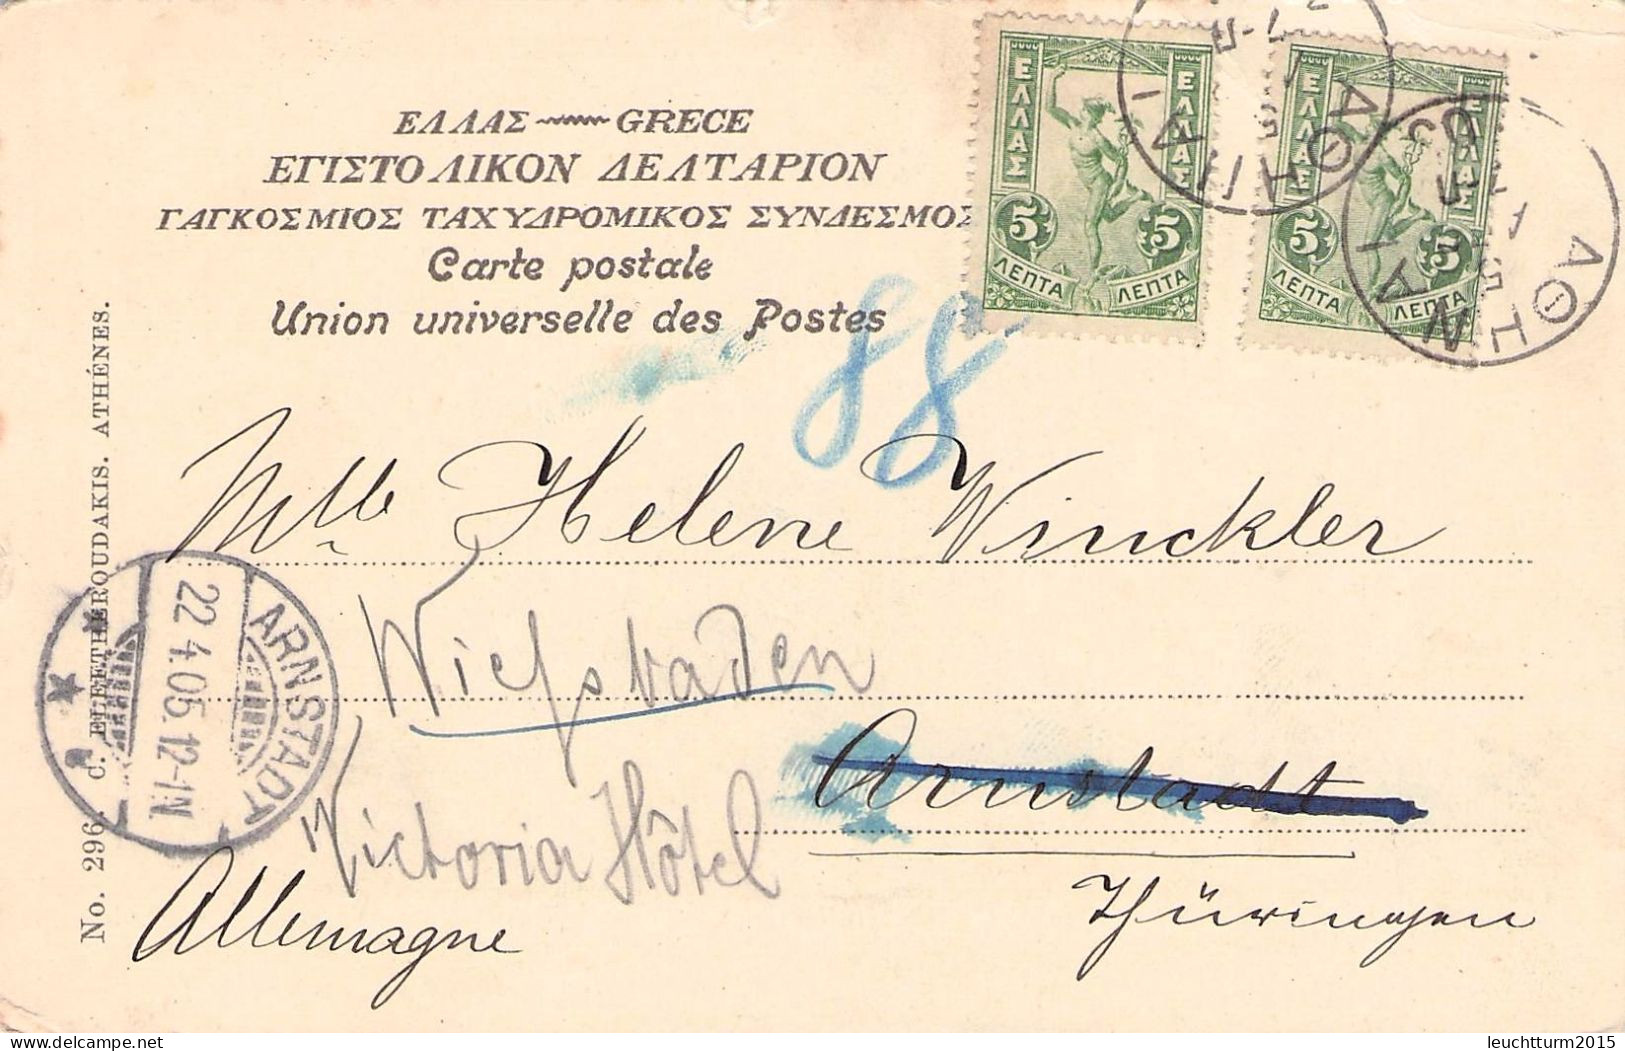 ΕΛΛΑΣ GRECE
ΕΓΙΣΤΟΛΙΚΟΝ ΔΕΛΤΑΡΙΟΝ
ΓΑΓΚΟΣΜΙΟΣ ΤΑΧΥΔΡΟΜΙΚΟΣ ΣΥΝΔΕΣΜΟΣ
Carte postale
Union universelle des Postes
ΕΛΛΑΣ ΕΛΛΑΣ
5 5
ΛΕΠΤΑ ΛΕΠΤΑ
ΕΛΛΑΣ ΕΛΛΑΣ
5 5
ΛΕΠΤΑ ΛΕΠΤΑ
ΑΘΗΝΑΙ
ΑΘΗΝΑΙ
88
Mlle Helene Winckler
Wiesbaden
Arnstadt
Victoria Hôtel
Thüringen
Allemagne
ARNSTADT
22.4.05.12-1N
No. 296. c. ELEFTHEROUDAKIS. ATHÉNES.
delcampe.net
leuchtturm2015